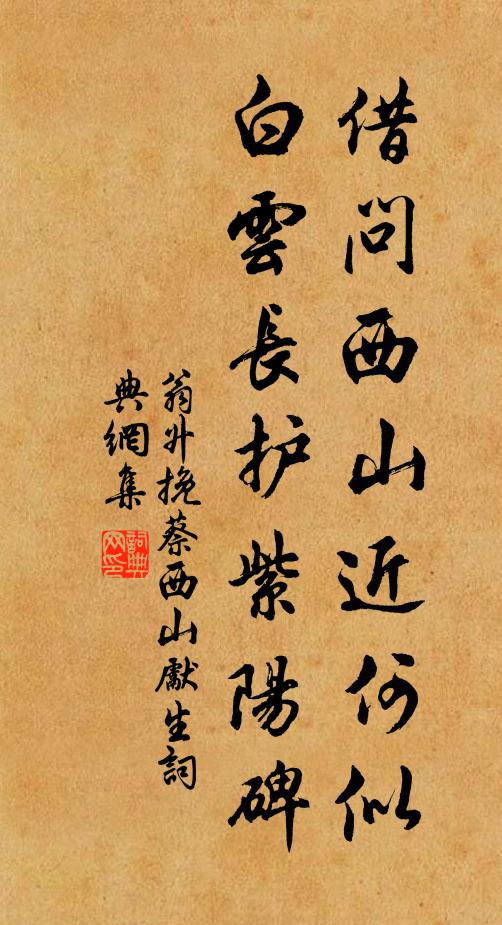 借問西山近何似
白雲長护紫陽碑
翁升挽蔡西山獻生詞
典網集
詞典
网印